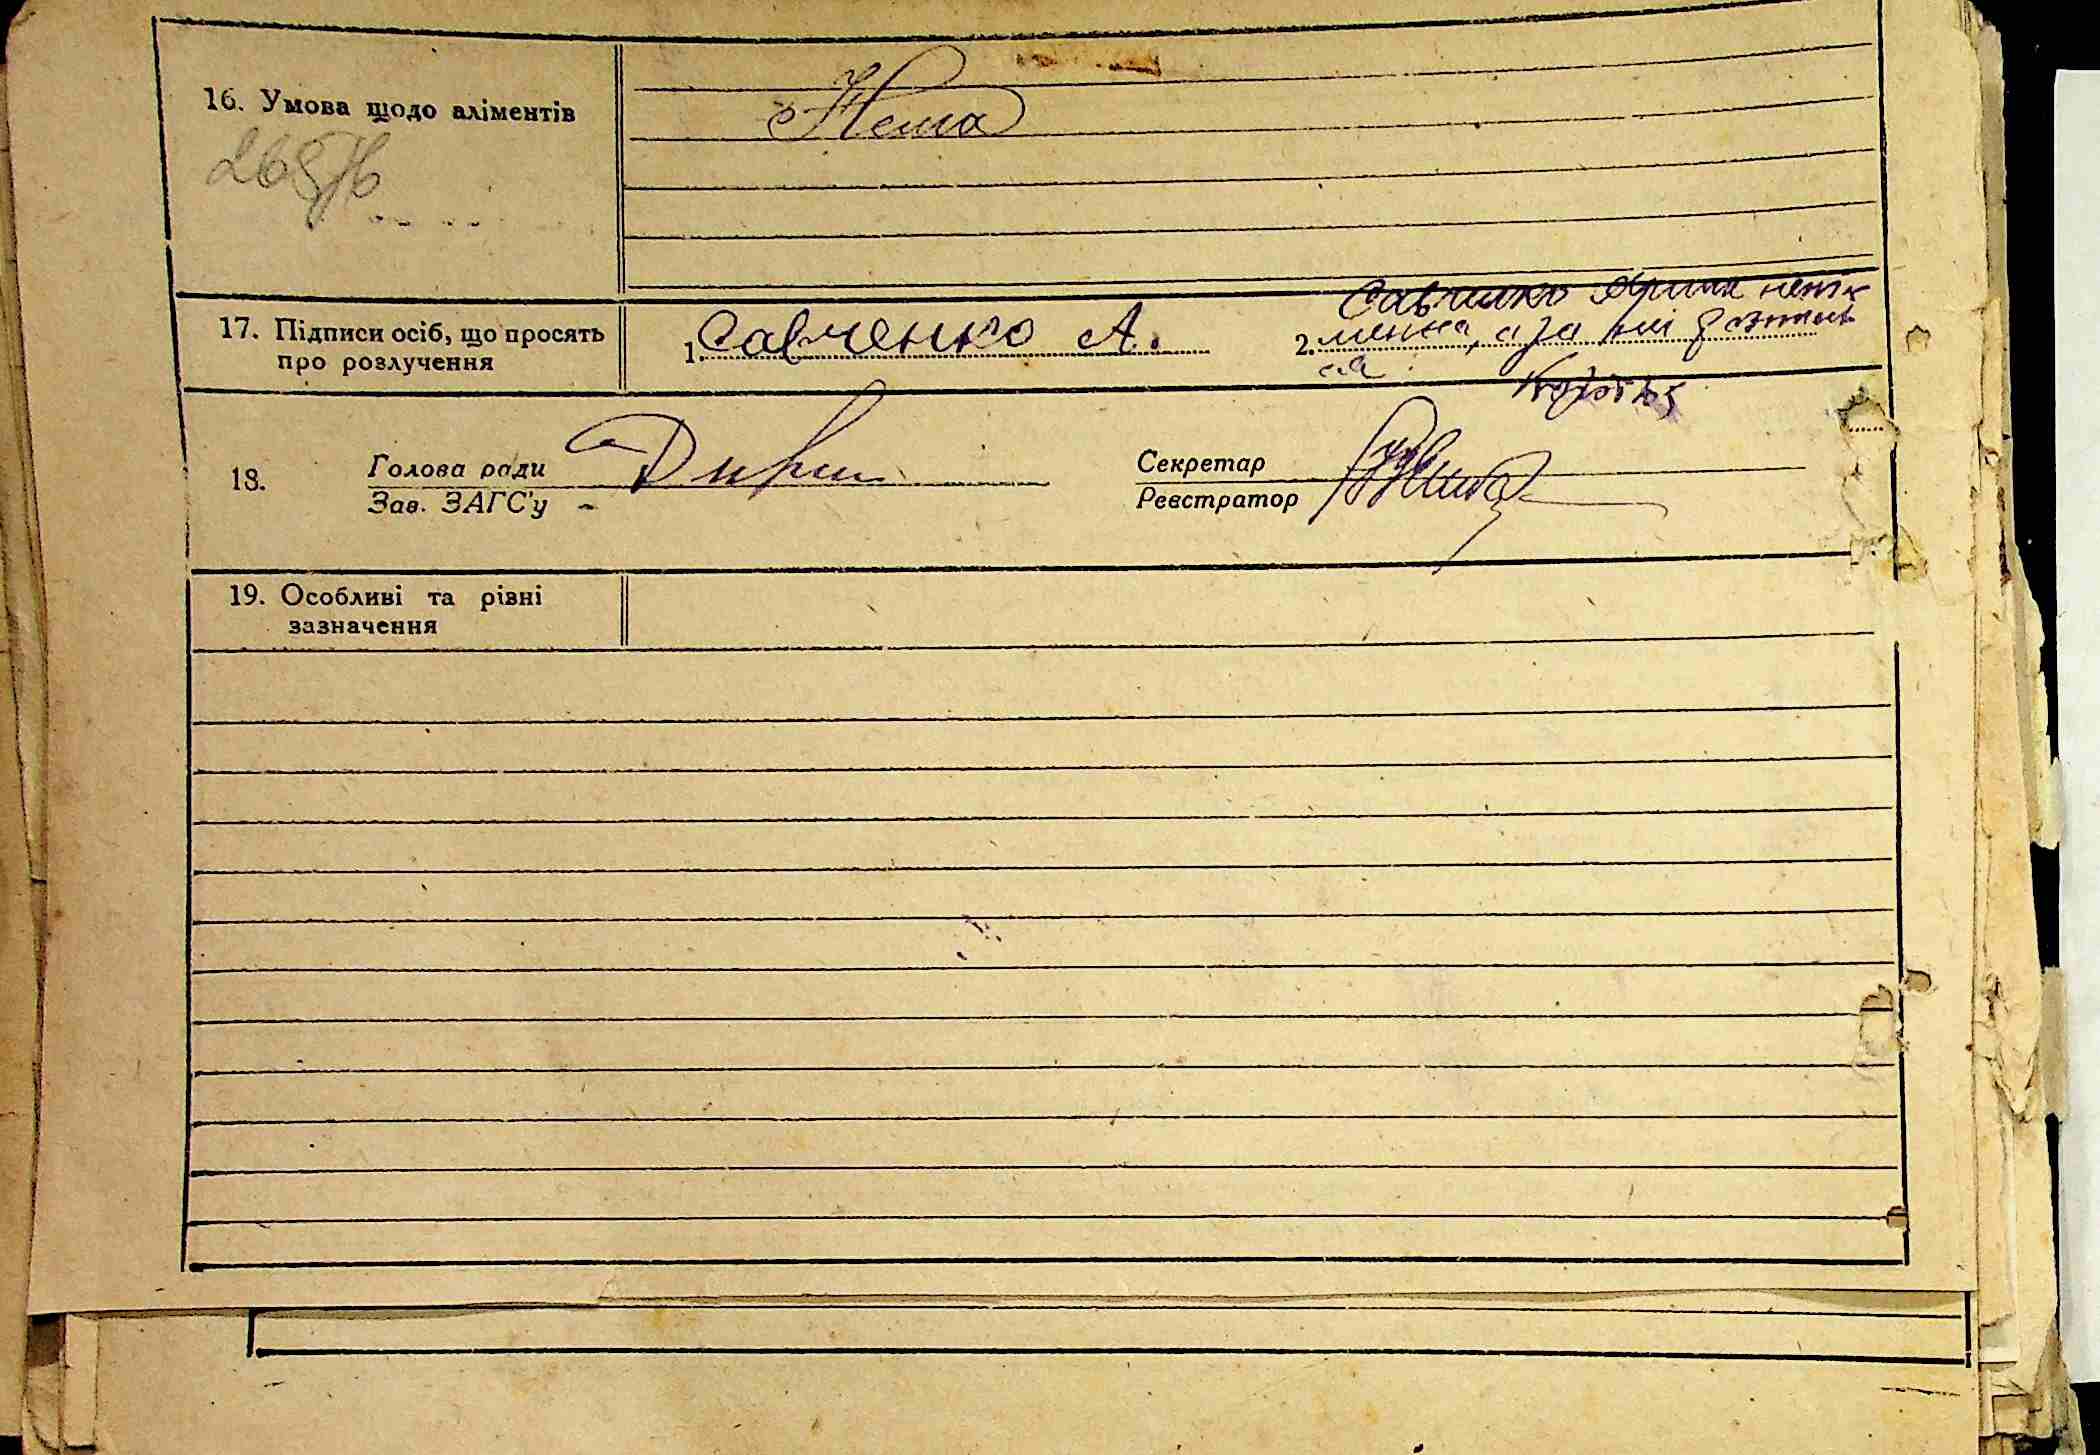 16. Умова щодо аліментів
Нема
17. Підписи осіб, що просять
про розлучення
1. Савченко А.
2. Савченко Ярина непис
менна, а за неї
18.
Голова ради
Зав. ЗАГС'у
Секретар
Реєстратор
19. Особливі та рівні
зазначення